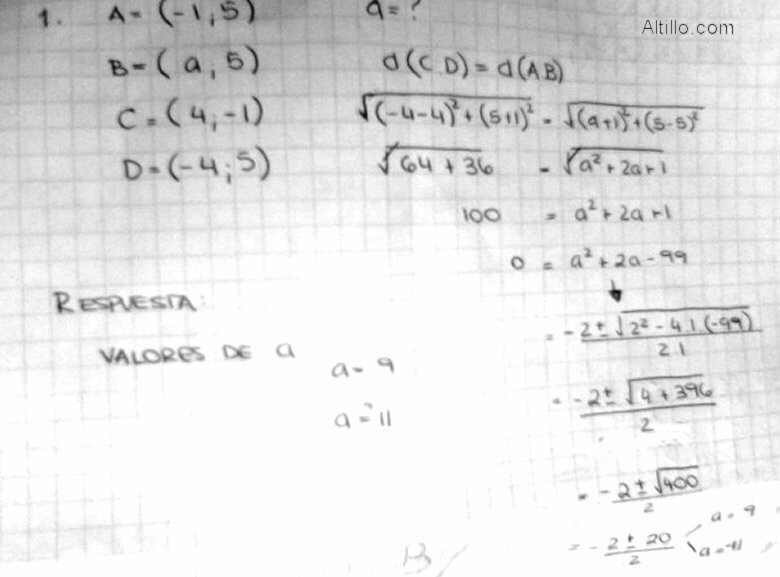 Altillo.com
1. A = (-1, 5) a = ?
B = ( a, 5) d(CD) = d(AB)
C = (4, -1) √(-4-4)²+(5+1)² = √(a+1)²+(5-5)²
D = (-4; 5) √64+36 = √a²+2a+1
100 = a²+2a+1
0 = a²+2a-99
RESPUESTA:
= -2±√2²-4.1(-99) / 2.1
VALORES DE a
a = 9
= -2±√4+396 / 2
a = 11
= -2±√400 / 2
= -2±20 / 2 a = 9
a = -11